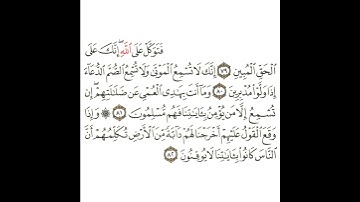 فَتَوَكَّلْ عَلَى ٱللَّهِ ۖ إِنَّكَ عَلَى
ٱلْحَقِّ ٱلْمُبِينِ ٧٩ إِنَّكَ لَا تُسْمِعُ ٱلْمَوْتَىٰ وَلَا تُسْمِعُ ٱلصُّمَّ ٱلدُّعَآءَ
إِذَا وَلَّوْا۟ مُدْبِرِينَ ٨٠ وَمَآ أَنتَ بِهَـٰدِى ٱلْعُمْىِ عَن ضَلَـٰلَتِهِمْ ۖ إِن
تُسْمِعُ إِلَّا مَن يُؤْمِنُ بِـَٔايَـٰتِنَا فَهُم مُّسْلِمُونَ ٨١ ۞ وَإِذَا
وَقَعَ ٱلْقَوْلُ عَلَيْهِمْ أَخْرَجْنَا لَهُمْ دَآبَّةً مِّنَ ٱلْأَرْضِ تُكَلِّمُهُمْ أَنَّ
ٱلنَّاسَ كَانُوا۟ بِـَٔايَـٰتِنَا لَا يُوقِنُونَ ٨٢